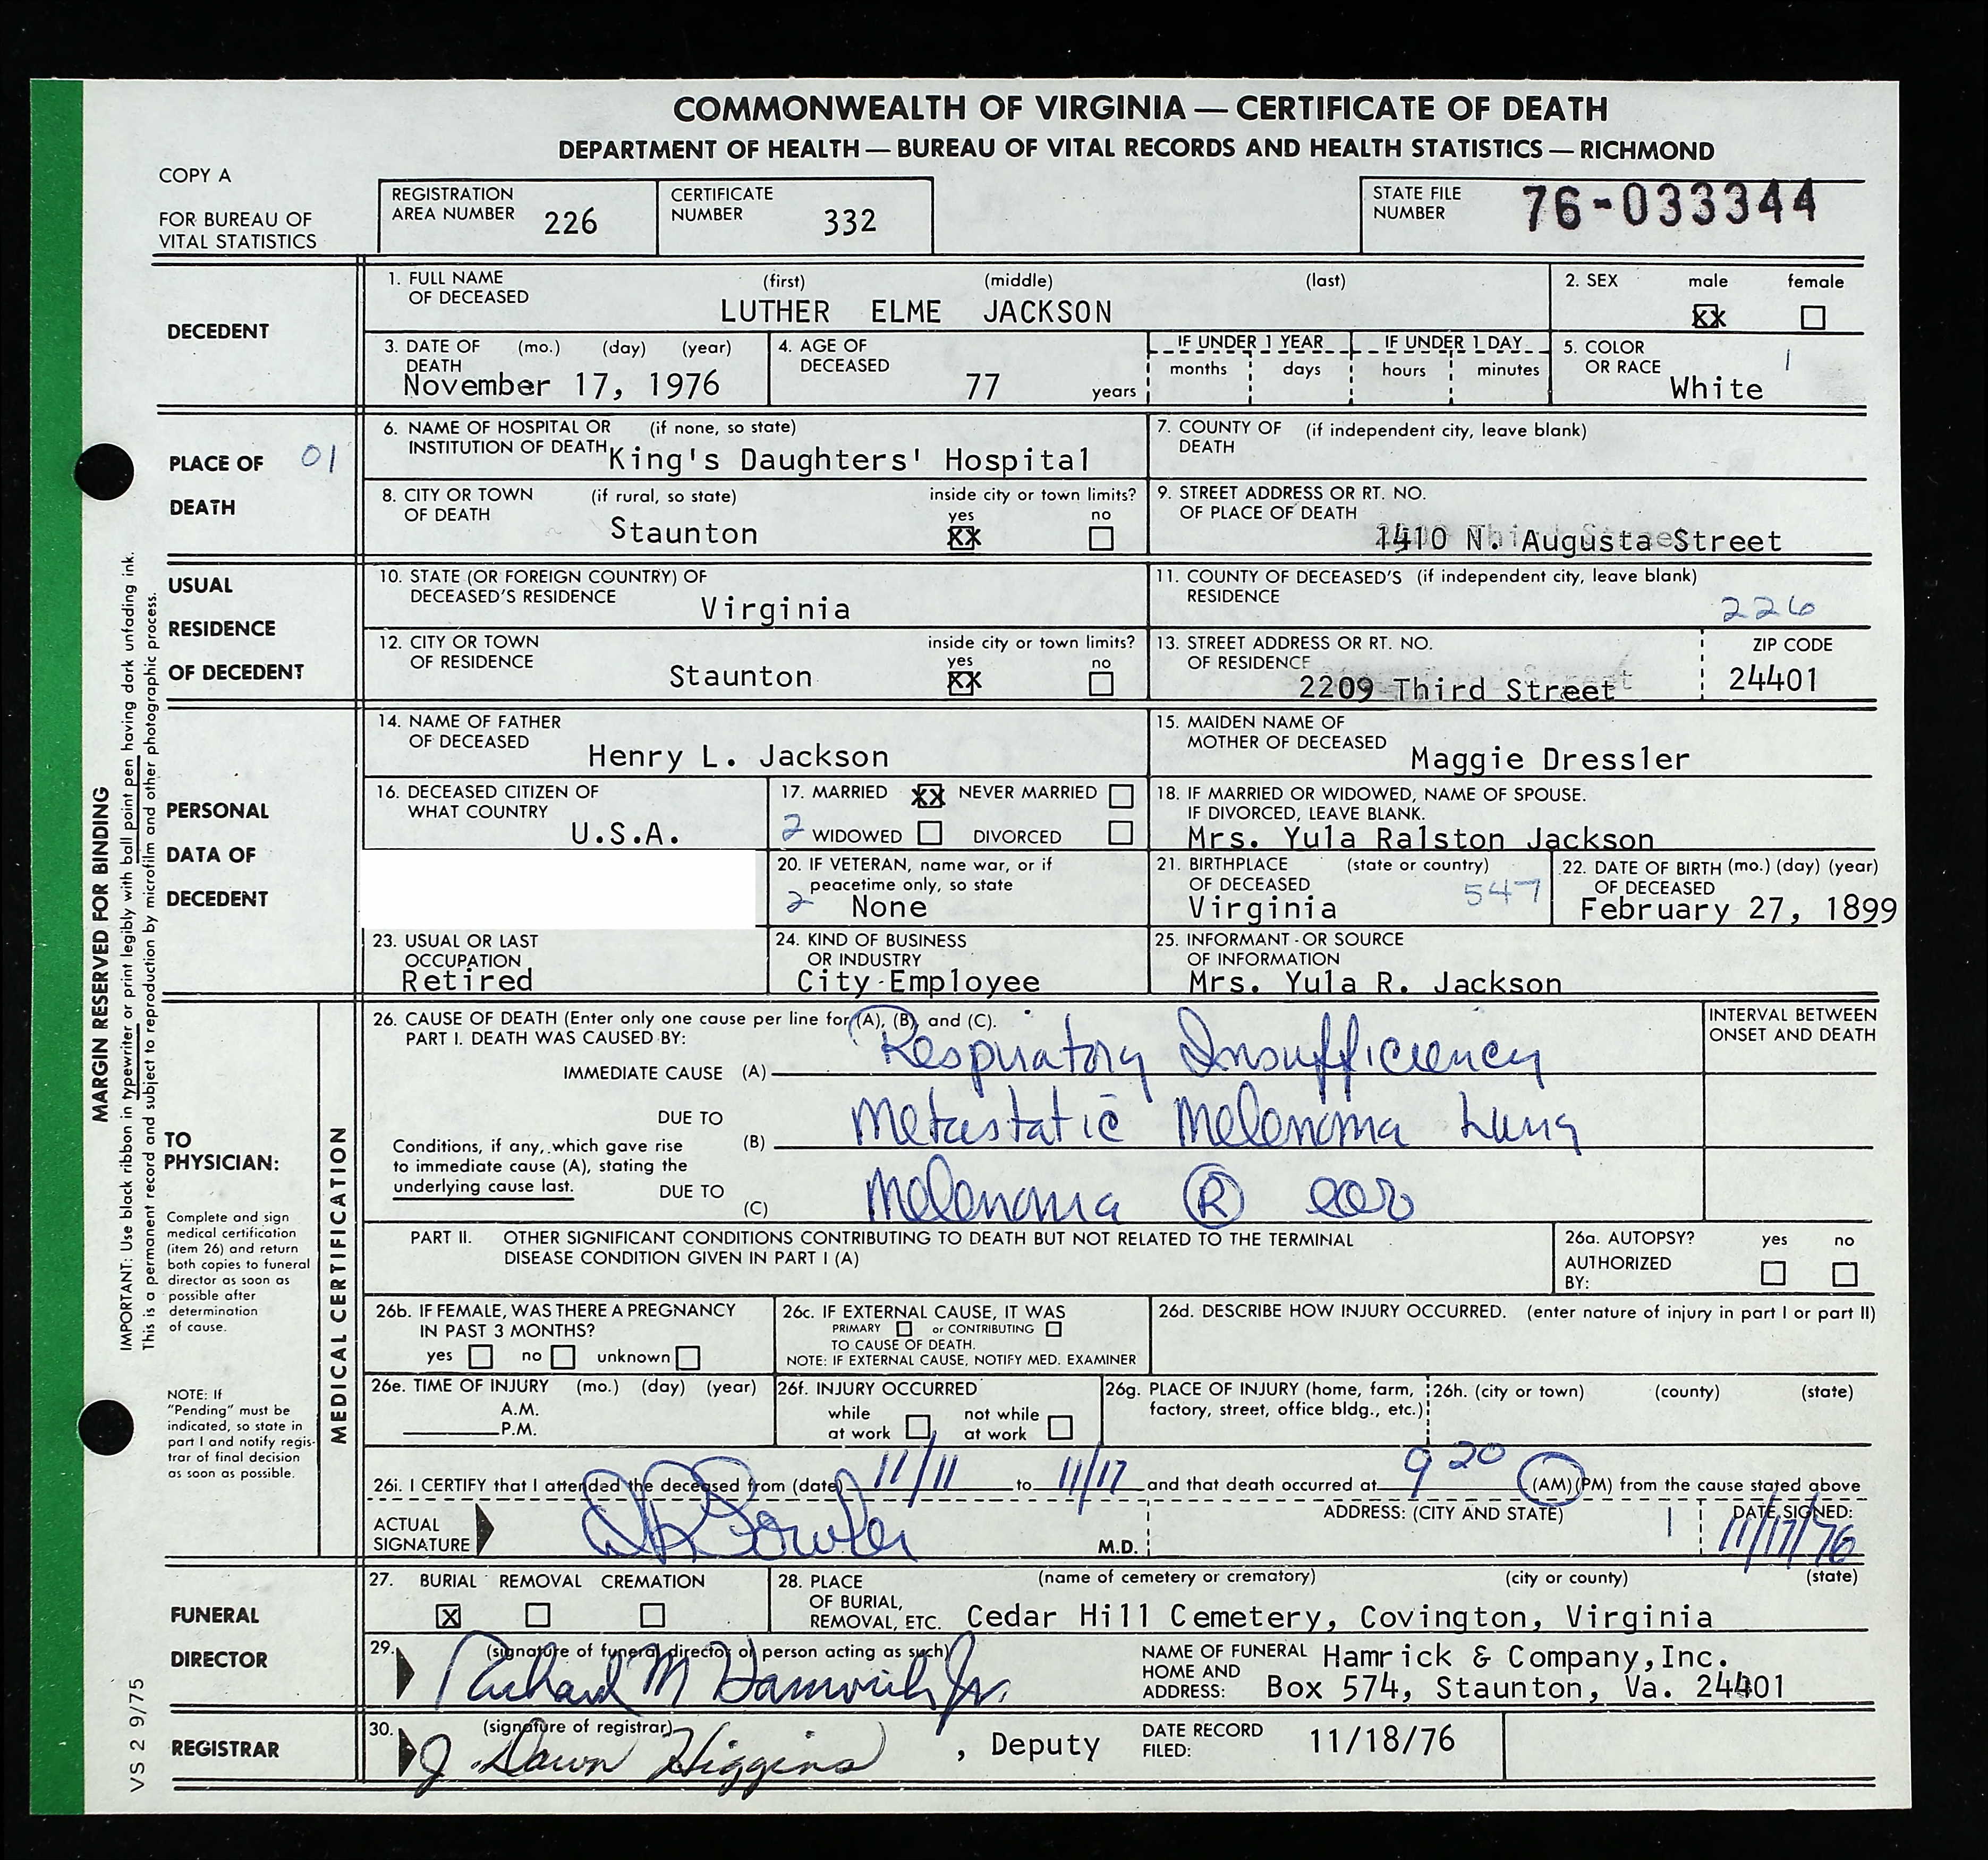 COMMONWEALTH OF VIRGINIA — CERTIFICATE OF DEATH
DEPARTMENT OF HEALTH — BUREAU OF VITAL RECORDS AND HEALTH STATISTICS — RICHMOND
COPY A
FOR BUREAU OF
VITAL STATISTICS
REGISTRATION
AREA NUMBER 226
CERTIFICATE
NUMBER 332
STATE FILE
NUMBER 76-033344
DECEDENT
1. FULL NAME (first) (middle) (last)
OF DECEASED
LUTHER ELME JACKSON
2. SEX male female
XX
3. DATE OF (mo.) (day) (year)
DEATH
November 17, 1976
4. AGE OF
DECEASED
77 years
IF UNDER 1 YEAR IF UNDER 1 DAY
months days hours minutes
5. COLOR
OR RACE 1
White
PLACE OF 01
DEATH
6. NAME OF HOSPITAL OR (if none, so state)
INSTITUTION OF DEATH King's Daughters' Hospital
7. COUNTY OF (if independent city, leave blank)
DEATH
8. CITY OR TOWN (if rural, so state) inside city or town limits?
OF DEATH yes no
Staunton XX
9. STREET ADDRESS OR RT. NO.
OF PLACE OF DEATH
1410 N. Augusta Street
USUAL
RESIDENCE
OF DECEDENT
10. STATE (OR FOREIGN COUNTRY) OF
DECEASED'S RESIDENCE
Virginia
11. COUNTY OF DECEASED'S (if independent city, leave blank)
RESIDENCE
226
12. CITY OR TOWN inside city or town limits?
OF RESIDENCE yes no
Staunton XX
13. STREET ADDRESS OR RT. NO.
OF RESIDENCE
2209 Third Street
ZIP CODE
24401
PERSONAL
DATA OF
DECEDENT
14. NAME OF FATHER
OF DECEASED
Henry L. Jackson
15. MAIDEN NAME OF
MOTHER OF DECEASED
Maggie Dressler
16. DECEASED CITIZEN OF
WHAT COUNTRY
U.S.A.
17. MARRIED XX NEVER MARRIED
2 WIDOWED DIVORCED
18. IF MARRIED OR WIDOWED, NAME OF SPOUSE.
IF DIVORCED, LEAVE BLANK.
Mrs. Yula Ralston Jackson
20. IF VETERAN, name war, or if
peacetime only, so state
2 None
21. BIRTHPLACE (state or country)
OF DECEASED 547
Virginia
22. DATE OF BIRTH (mo.) (day) (year)
OF DECEASED
February 27, 1899
23. USUAL OR LAST
OCCUPATION
Retired
24. KIND OF BUSINESS
OR INDUSTRY
City Employee
25. INFORMANT - OR SOURCE
OF INFORMATION
Mrs. Yula R. Jackson
TO
PHYSICIAN:
Complete and sign
medical certification
(item 26) and return
both copies to funeral
director as soon as
possible after
determination
of cause.
NOTE: If
"Pending" must be
indicated, so state in
part I and notify regis-
trar of final decision
as soon as possible.
MEDICAL CERTIFICATION
26. CAUSE OF DEATH (Enter only one cause per line for (A), (B), and (C).
PART I. DEATH WAS CAUSED BY:
INTERVAL BETWEEN
ONSET AND DEATH
IMMEDIATE CAUSE (A) Respiratory Insufficiency
DUE TO
(B) Metastatic Melenoma Lung
Conditions, if any, which gave rise
to immediate cause (A), stating the
underlying cause last.
DUE TO
(C) Melenoma R ear
PART II. OTHER SIGNIFICANT CONDITIONS CONTRIBUTING TO DEATH BUT NOT RELATED TO THE TERMINAL
DISEASE CONDITION GIVEN IN PART I (A)
26a. AUTOPSY? yes no
AUTHORIZED
BY:
26b. IF FEMALE, WAS THERE A PREGNANCY
IN PAST 3 MONTHS?
yes no unknown
26c. IF EXTERNAL CAUSE, IT WAS
PRIMARY or CONTRIBUTING
TO CAUSE OF DEATH.
NOTE: IF EXTERNAL CAUSE, NOTIFY MED. EXAMINER
26d. DESCRIBE HOW INJURY OCCURRED. (enter nature of injury in part I or part II)
26e. TIME OF INJURY (mo.) (day) (year)
A.M.
P.M.
26f. INJURY OCCURRED
while not while
at work at work
26g. PLACE OF INJURY (home, farm,
factory, street, office bldg., etc.)
26h. (city or town) (county) (state)
26i. I CERTIFY that I attended the deceased from (date) 11/11 to 11/17 and that death occurred at 9 20 (AM) (PM) from the cause stated above
ACTUAL
SIGNATURE
M.D.
ADDRESS: (CITY AND STATE) 1
DATE SIGNED:
11/17/76
FUNERAL
DIRECTOR
27. BURIAL REMOVAL CREMATION
X
28. PLACE (name of cemetery or crematory) (city or county) (state)
OF BURIAL,
REMOVAL, ETC. Cedar Hill Cemetery, Covington, Virginia
29. (signature of funeral director or person acting as such)
Richard M Hamrick Jr.
NAME OF FUNERAL Hamrick & Company, Inc.
HOME AND
ADDRESS: Box 574, Staunton, Va. 24401
REGISTRAR
30. (signature of registrar)
J. Dawn Higgins, Deputy
DATE RECORD
FILED: 11/18/76
MARGIN RESERVED FOR BINDING
IMPORTANT: Use black ribbon in typewriter or print legibly with ball point pen having dark unfading ink.
This is a permanent record and subject to reproduction by microfilm and other photographic process.
VS 2 9/75